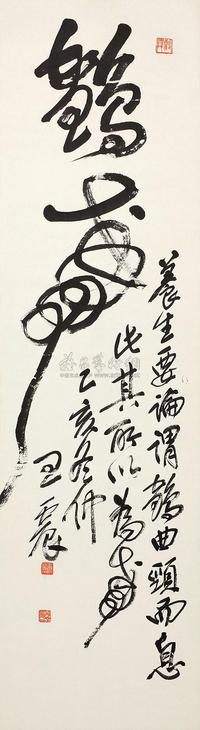 鶴壽
養生要論謂鶴曲頸而息
此其所以為壽
乙亥冬仲
王震